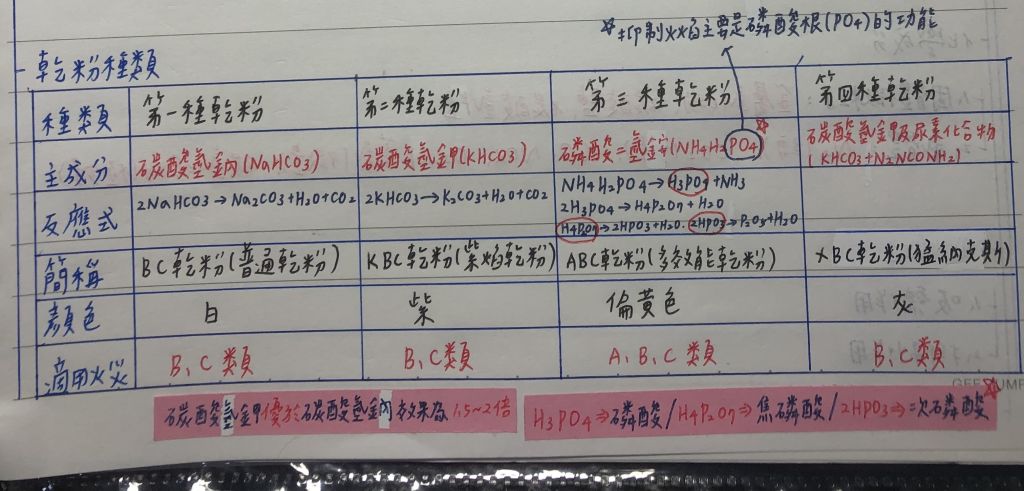 *抑制火焰主要是磷酸根(PO4)的功能
乾粉種類
種類 第一種乾粉 第二種乾粉 第三種乾粉 第四種乾粉
主成分 碳酸氫鈉(NaHCO3) 碳酸氫鉀(KHCO3) 磷酸二氫銨(NH4H2PO4) 碳酸氫鉀及尿素化合物
(KHCO3+N2NCONH2)
反應式 2NaHCO3→Na2CO3+H2O+CO2 2KHCO3→K2CO3+H2O+CO2 NH4H2PO4→H3PO4+NH3
2H3PO4→H4P2O7+H2O
H4P2O7→2HPO3+H2O. 2HPO3→P2O5+H2O
簡稱 BC乾粉(普通乾粉) KBC乾粉(紫焰乾粉) ABC乾粉(多效能乾粉) XBC乾粉(猛納克斯)
顏色 白 紫 偏黃色 灰
適用火災 B、C類 B、C類 A、B、C類 B、C類
碳酸氫鉀優於碳酸氫鈉效果為1.5~2倍
H3PO4⇒磷酸/H4P2O7⇒焦磷酸/2HPO3⇒二次磷酸